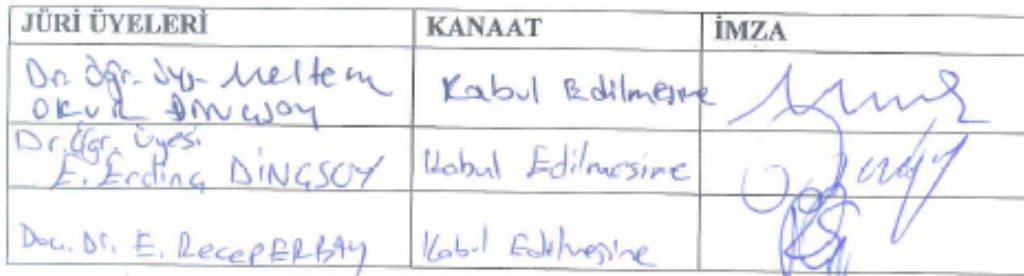 JÜRİ ÜYELERİ KANAAT İMZA
Dr. Öğr. Üy. Meltem Kabul Edilmesine
OKUR DİNÇSOY
Dr. Öğr. Üyesi
E. Erdinç DİNÇSOY Kabul Edilmesine
Doç. Dr. E. Recep ERBAY Kabul Edilmesine